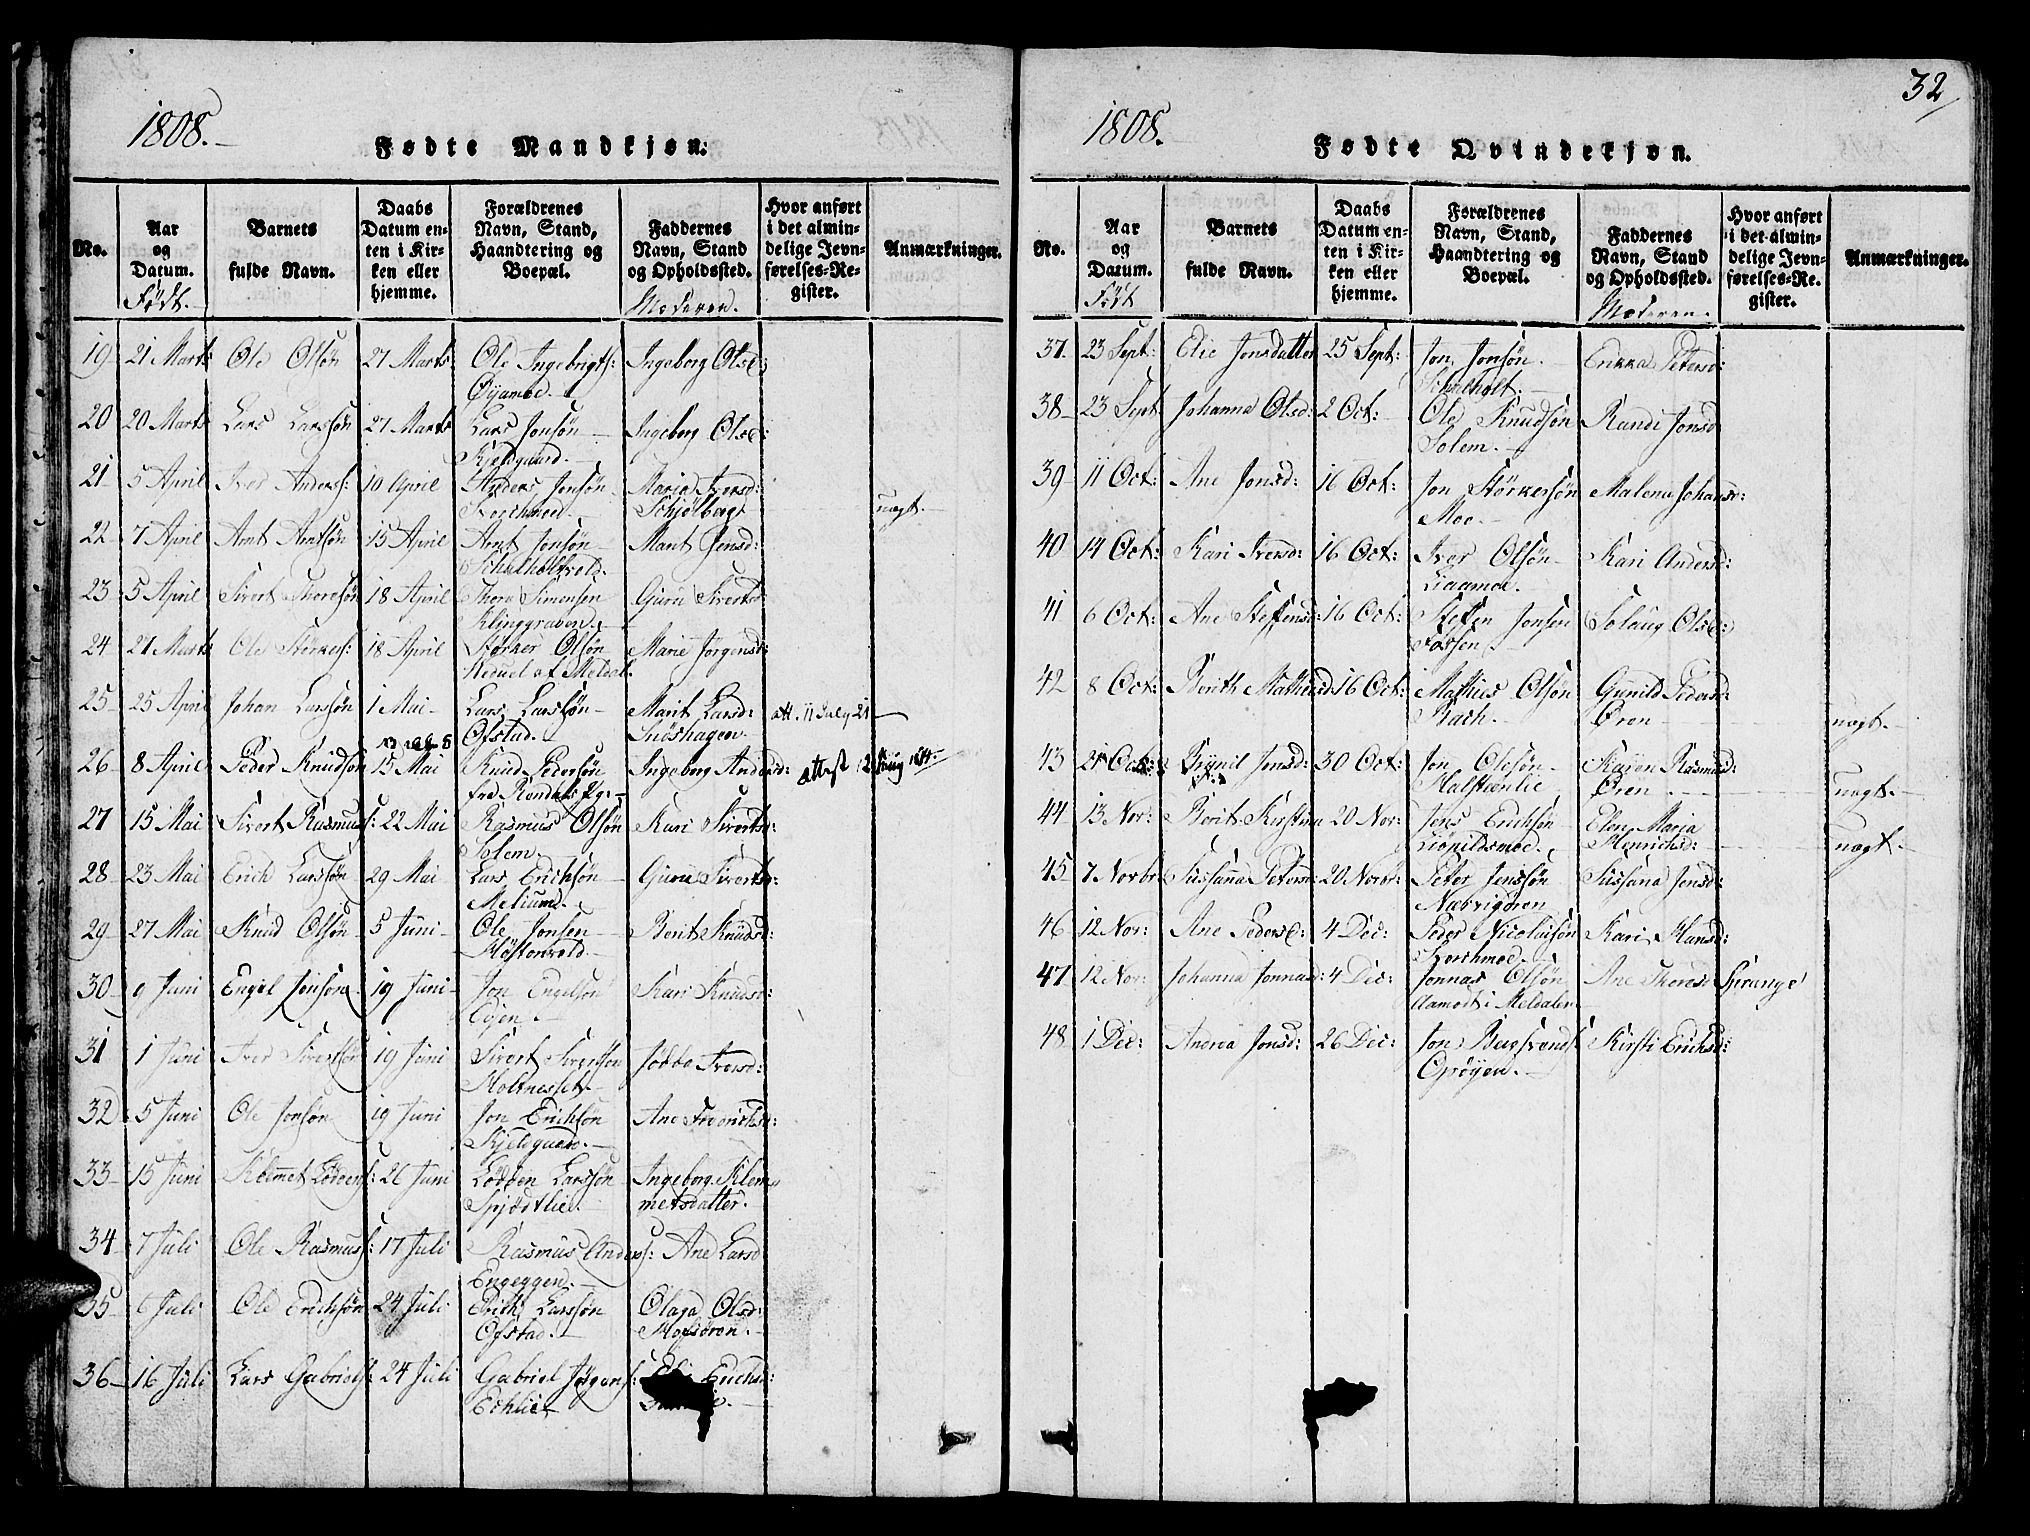 32
1808.
Fødte Mandkjøn.
No.
Aar og Datum. Født.
Barnets fulde Navn.
Daabs Datum enten i Kirken eller hjemme.
Forældrenes Navn, Stand, Haandtering og Boepæl.
Faddernes Navn, Stand og Opholdssted. Moderen.
Hvor anført i det almindelige Jevnførelses-Register.
Anmærkninger.
19 21 Marts Ole Olsøn 27 Marts Ole Ingebrigts: Ingeborg Olsd:
Øyamoe.
20 20 Marts Lars Larssøn 27 Marts Lars Jonsøn Ingeborg Olsd:
Kjeldgaard.
21 5 April Iver Anders: 10 April Anders Jonsøn Maria Iversd:
Schjølberg uægt.
22 7 April Arnt Arntsøn 15 April Arnt Jonsøn Marit Jensd:
Schalholtvold.
23 5 April Sivert Thoresøn 18 April Thore Simonsen Guru Sivertsd:
Klinggraven.
24 27 Marts Ole Størkers: 18 April Størker Olsøn Marie Jørgensd:
af Meldal.
25 25 April Johan Larssøn 1 Mai Lars Larssøn Marit Larsd: att. 11 July 21
Ofstad. Snøshagen.
26 8 April Peder Knudsøn 15 Mai Knud Pedersøn Ingeborg Andersd: attest 12
fra Rendals Pg:
27 15 Mai Sivert Rasmuss: 22 Mai Rasmus Olsøn Kari Sivertsd:
Solem.
28 23 Mai Erich Larssøn 29 Mai Lars Erichsøn Guru Sivertsd:
Melium.
29 27 Mai Knud Olsøn 5 Juni Ole Jonsen Berit Knudsd:
Høstonvold.
30 9 Juni Engel Jonsøn 19 Juni Jon Engelsøn Kari Knudsd:
Eyen.
31 1 Juni Iver Sivertsøn 19 Juni Sivert Iversøn Jödde Iversd:
Holtnesset.
32 5 Juni Ole Jonsøn 19 Juni Jon Erichsøn Ane Friderichsd:
Kjeldgaard.
33 15 Juni Klemmet Lødens: 26 Juni Lødden Larssøn Ingeborg Klem-
Spjødtlie. metsdatter.
34 7 Juli Ole Rasmus: 17 Juli Rasmus Anders: Ane Larsd
Engeggen.
35 6 Juli Ole Erichsøn 24 Juli Erich Larssøn Olaga Olsd:
Ofstad. Mofsøren.
36 16 Juli Lars Gabriels: 24 Juli Gabriel Jørgens: Erichsd:
Echlie
1808.
Fødte Qvindekjøn.
No.
Aar og Datum. Født
Barnets fulde Navn.
Daabs Datum enten i Kirken eller hjemme.
Forældrenes Navn, Stand, Haandtering og Boepæl.
Faddernes Navn, Stand og Opholdssted. Moderen.
Hvor anført i det almindelige Jevnførelses-Register.
Anmærkninger.
37 23 Sept: Elie Jonsdatter 25 Sept: Jon Jonsøn Erikka Petersd:
Schalholt.
38 23 Sept Johanna Olsd: 2 Oct: Ole Knudsøn Randi Jonsd
Solem.
39 11 Oct: Ane Jonsd: 16 Oct: Jon Størkersøn Malena Johansd:
Moe.
40 14 Oct: Kari Iversd: 16 Oct: Iver Olsøn Kari Andersd:
Liaamoe.
41 6 Oct: Ane Steffensd: 16 Oct: Steffen Jonsen Solaug Olsd:
Fossen
42 8 Oct: Berith Mathiasd 16 Oct: Mathies Olsøn Gunild Pedersd:
Bach. Øren uægt.
43 21 Oct: Brynil Jonsd: 30 Oct: Jon Olesøn Kayen Rasmusd:
Halstænlie Øren uægt.
44 13 Nor: Berit Kirstina 20 Nor: Jens Erichsøn Elen Maria
Liønildsmoe. Henrichsd: uægt.
45 7 Novbr Sussanna Petersd: 20 Novbr: Peter Jenssøn Sussana Jensd:
Nævrigøren
46 12 Nor: Ane Pedersd: 4 Dec: Peder Nicolaisøn Kari Hansd:
47 12 Nor: Johanna Jonnasd: 4 Dec: Jonnas Olsøn Ane Thoresd Sprange
Aamodt i Meldalen
48 1 Dec: Andrea Jonsd: 26 Dec: Jon Kirsti Erichsd:
Opøyen.